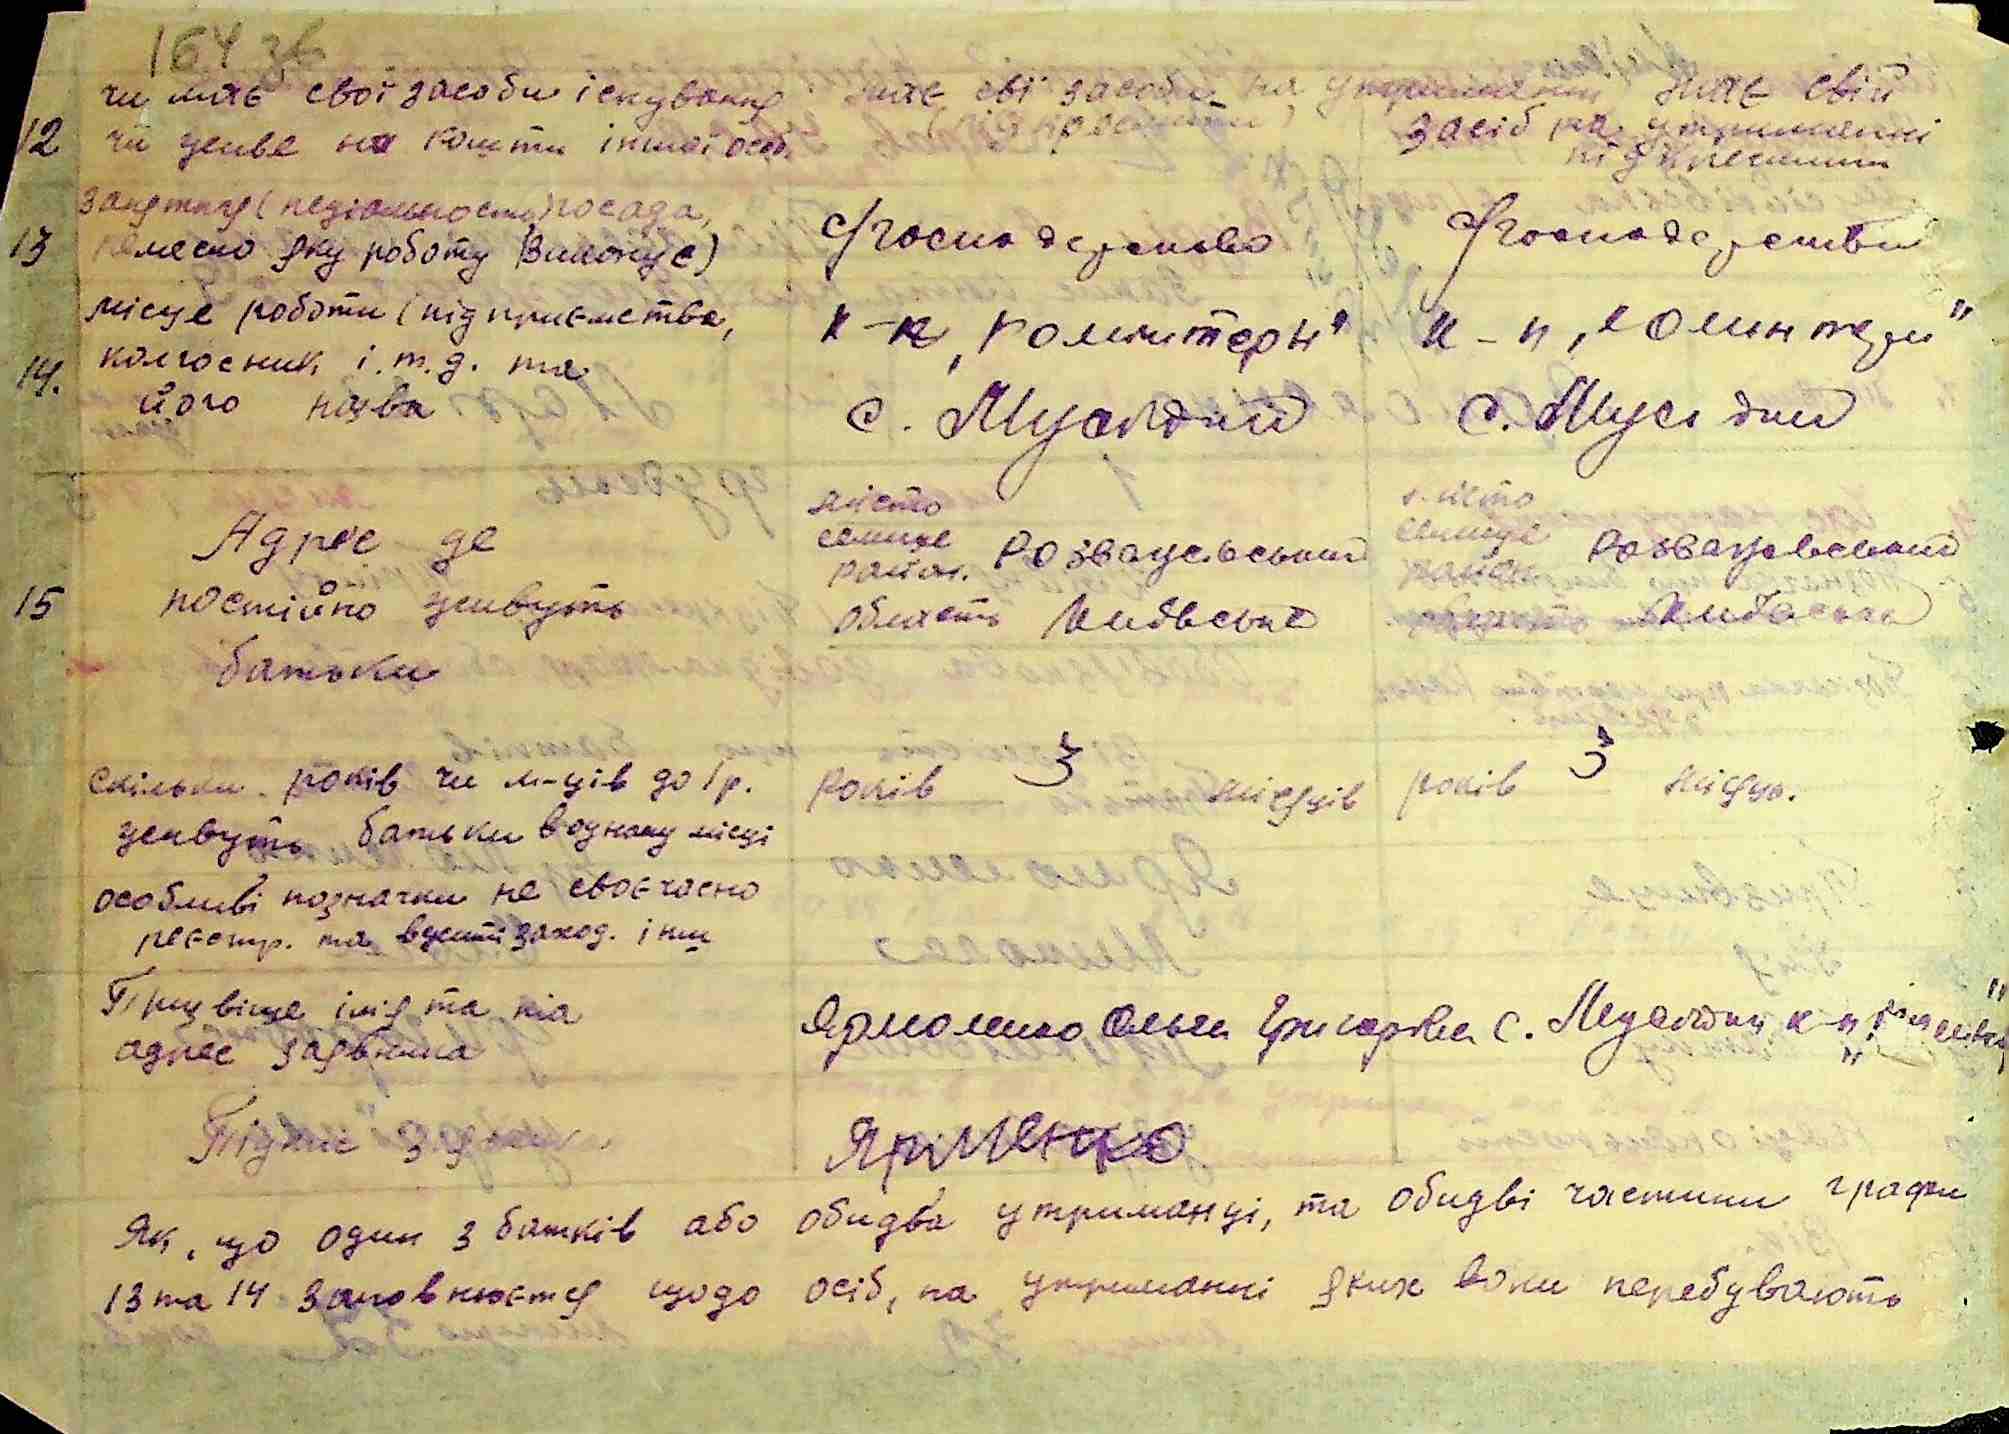 164 зв
чи має свої засоби існування має сві засоби на утриманні має свій
12 чи живе на кошти іншої особ. (підкреслити) засіб на утриманні
підкреслити
заняття (педіальность) посада,
13 ремесло яку роботу виконує) с/господарство с/господарстви
місце роботи (підприємства, к-п „Комінтерн" к-п „Комінтерн"
14. колгосник і.т.д. та
його назва с. Мусійки с. Мусійки
місто місто
Адрес де селище Розважевський селище Розважевський
район. район
15 постійно живуть область Київська область Київська
батьки
скільки років чи м-ців до 1р. років 3 місяців років 3 місяц.
живуть батьки в одному місці
особливі позначки не своєчасно
реєстр. та вжиті заход. інш
Прізвище імя та
адрес заявника Ярмоленко Ольга Григорівна с. к-п
Підпис Ярменко
Як, що один з батків або обидва утриманці, та обидві частини графи
13 та 14 заповнюєтся щодо осіб, на утриманні яких вони перебувають